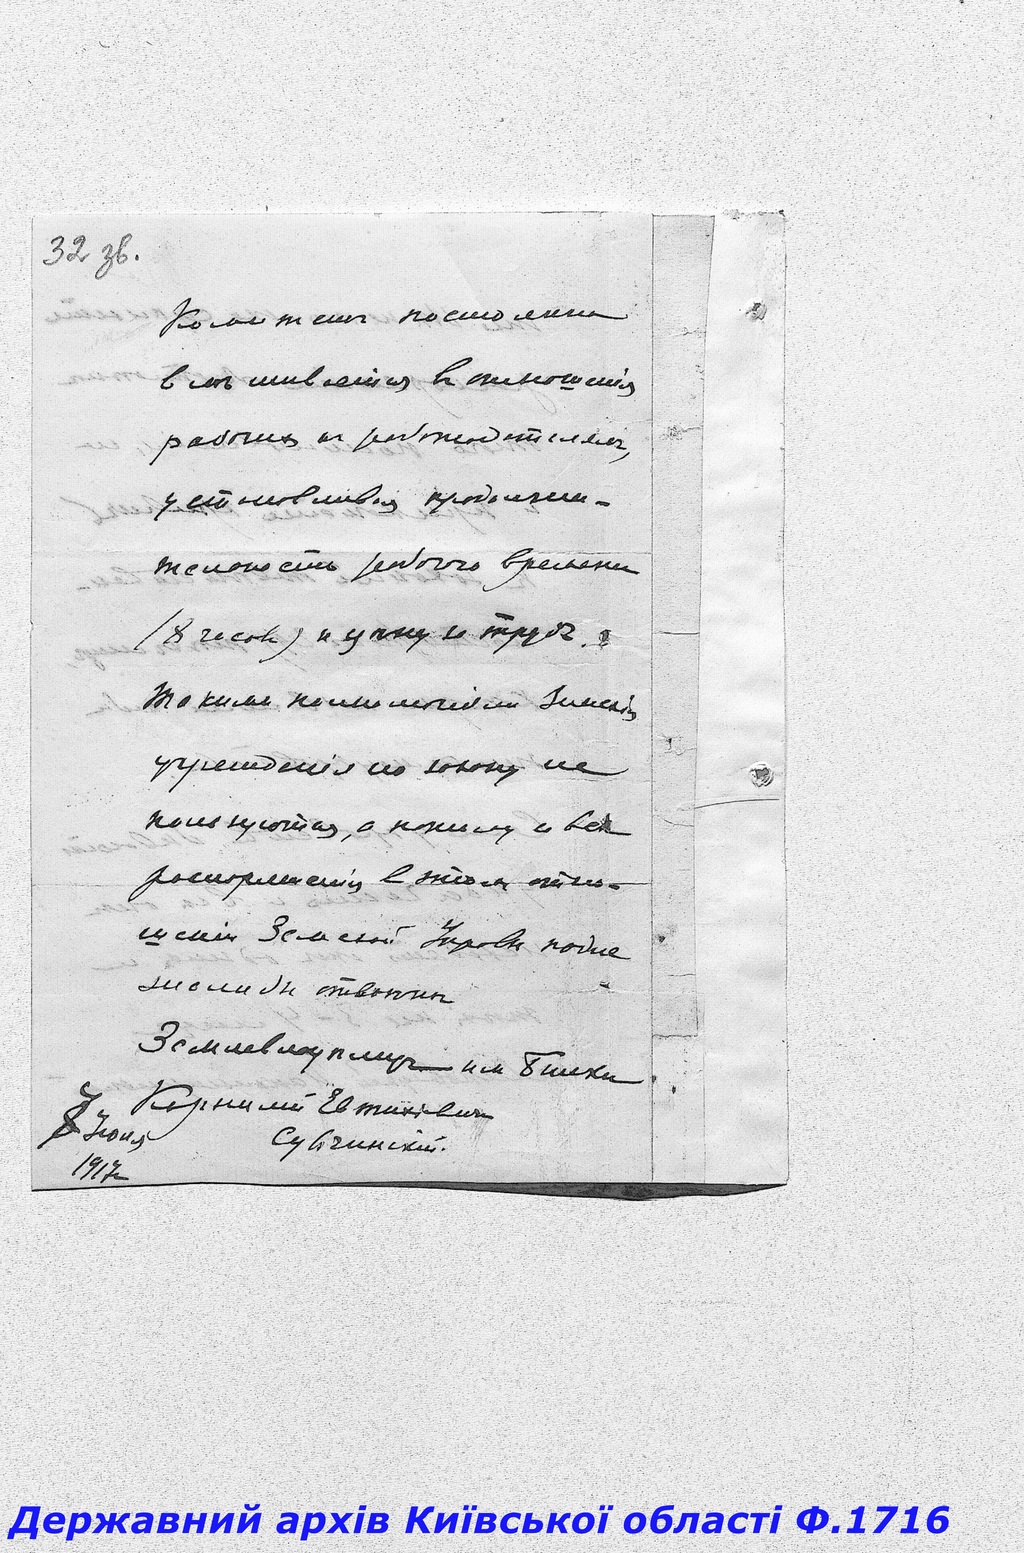 32 зв.
Комитетъ постоянно
вмѣшивается въ отношенія
рабочихъ къ работодателямъ,
устанавливая продолжи-
тельность рабочаго времени
(8 часовъ) и цѣну за трудъ.
Такими полномочіями Земскія
учрежденія по закону не
пользуются, а потому и всѣ
распоряженія въ этомъ отно-
шеніи Земской Управы
отвѣтить
Землевладѣлецъ им
Корнилій Евтихіевичъ
Сувчинскій.
8 Іюня
1917
Державний архів Київської області Ф.1716